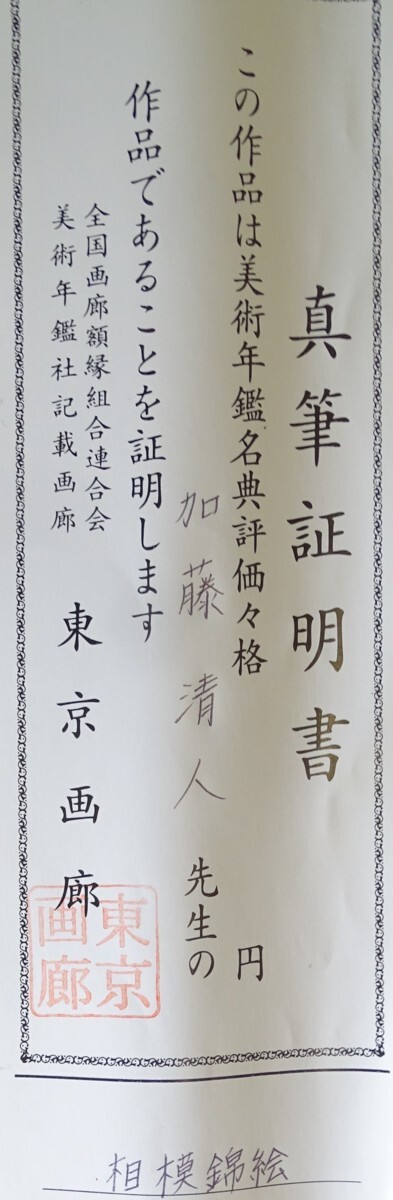 真筆証明書
この作品は美術年鑑名典評価々格 円
加藤清人 先生の
作品であることを証明します
全国画廊額縁組合連合会
美術年鑑社記載画廊
東京画廊
東京画廊
相模錦絵